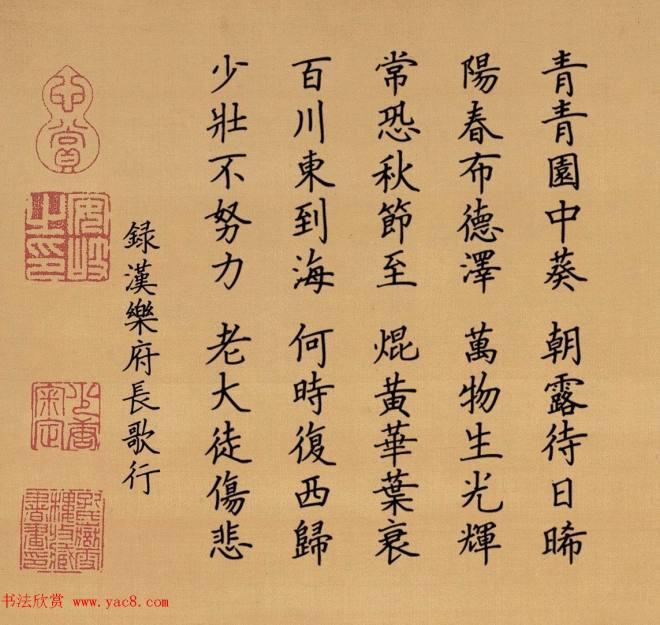 青青園中葵 朝露待日晞
陽春布德澤 萬物生光輝
常恐秋節至 焜黃華葉衰
百川東到海 何時復西歸
少壯不努力 老大徒傷悲
錄漢樂府長歌行
心賞
安岐之印
书法欣赏 www.yac8.com